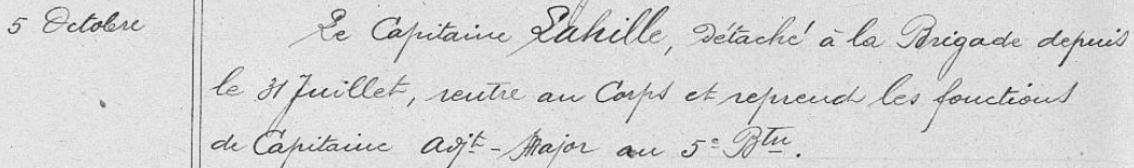 5 Octobre
Le Capitaine Lahille, Détaché à la Brigade depuis
le 31 Juillet, rentre au Corps et reprend les fonctions
de Capitaine adjt - Major au 5e Btn.